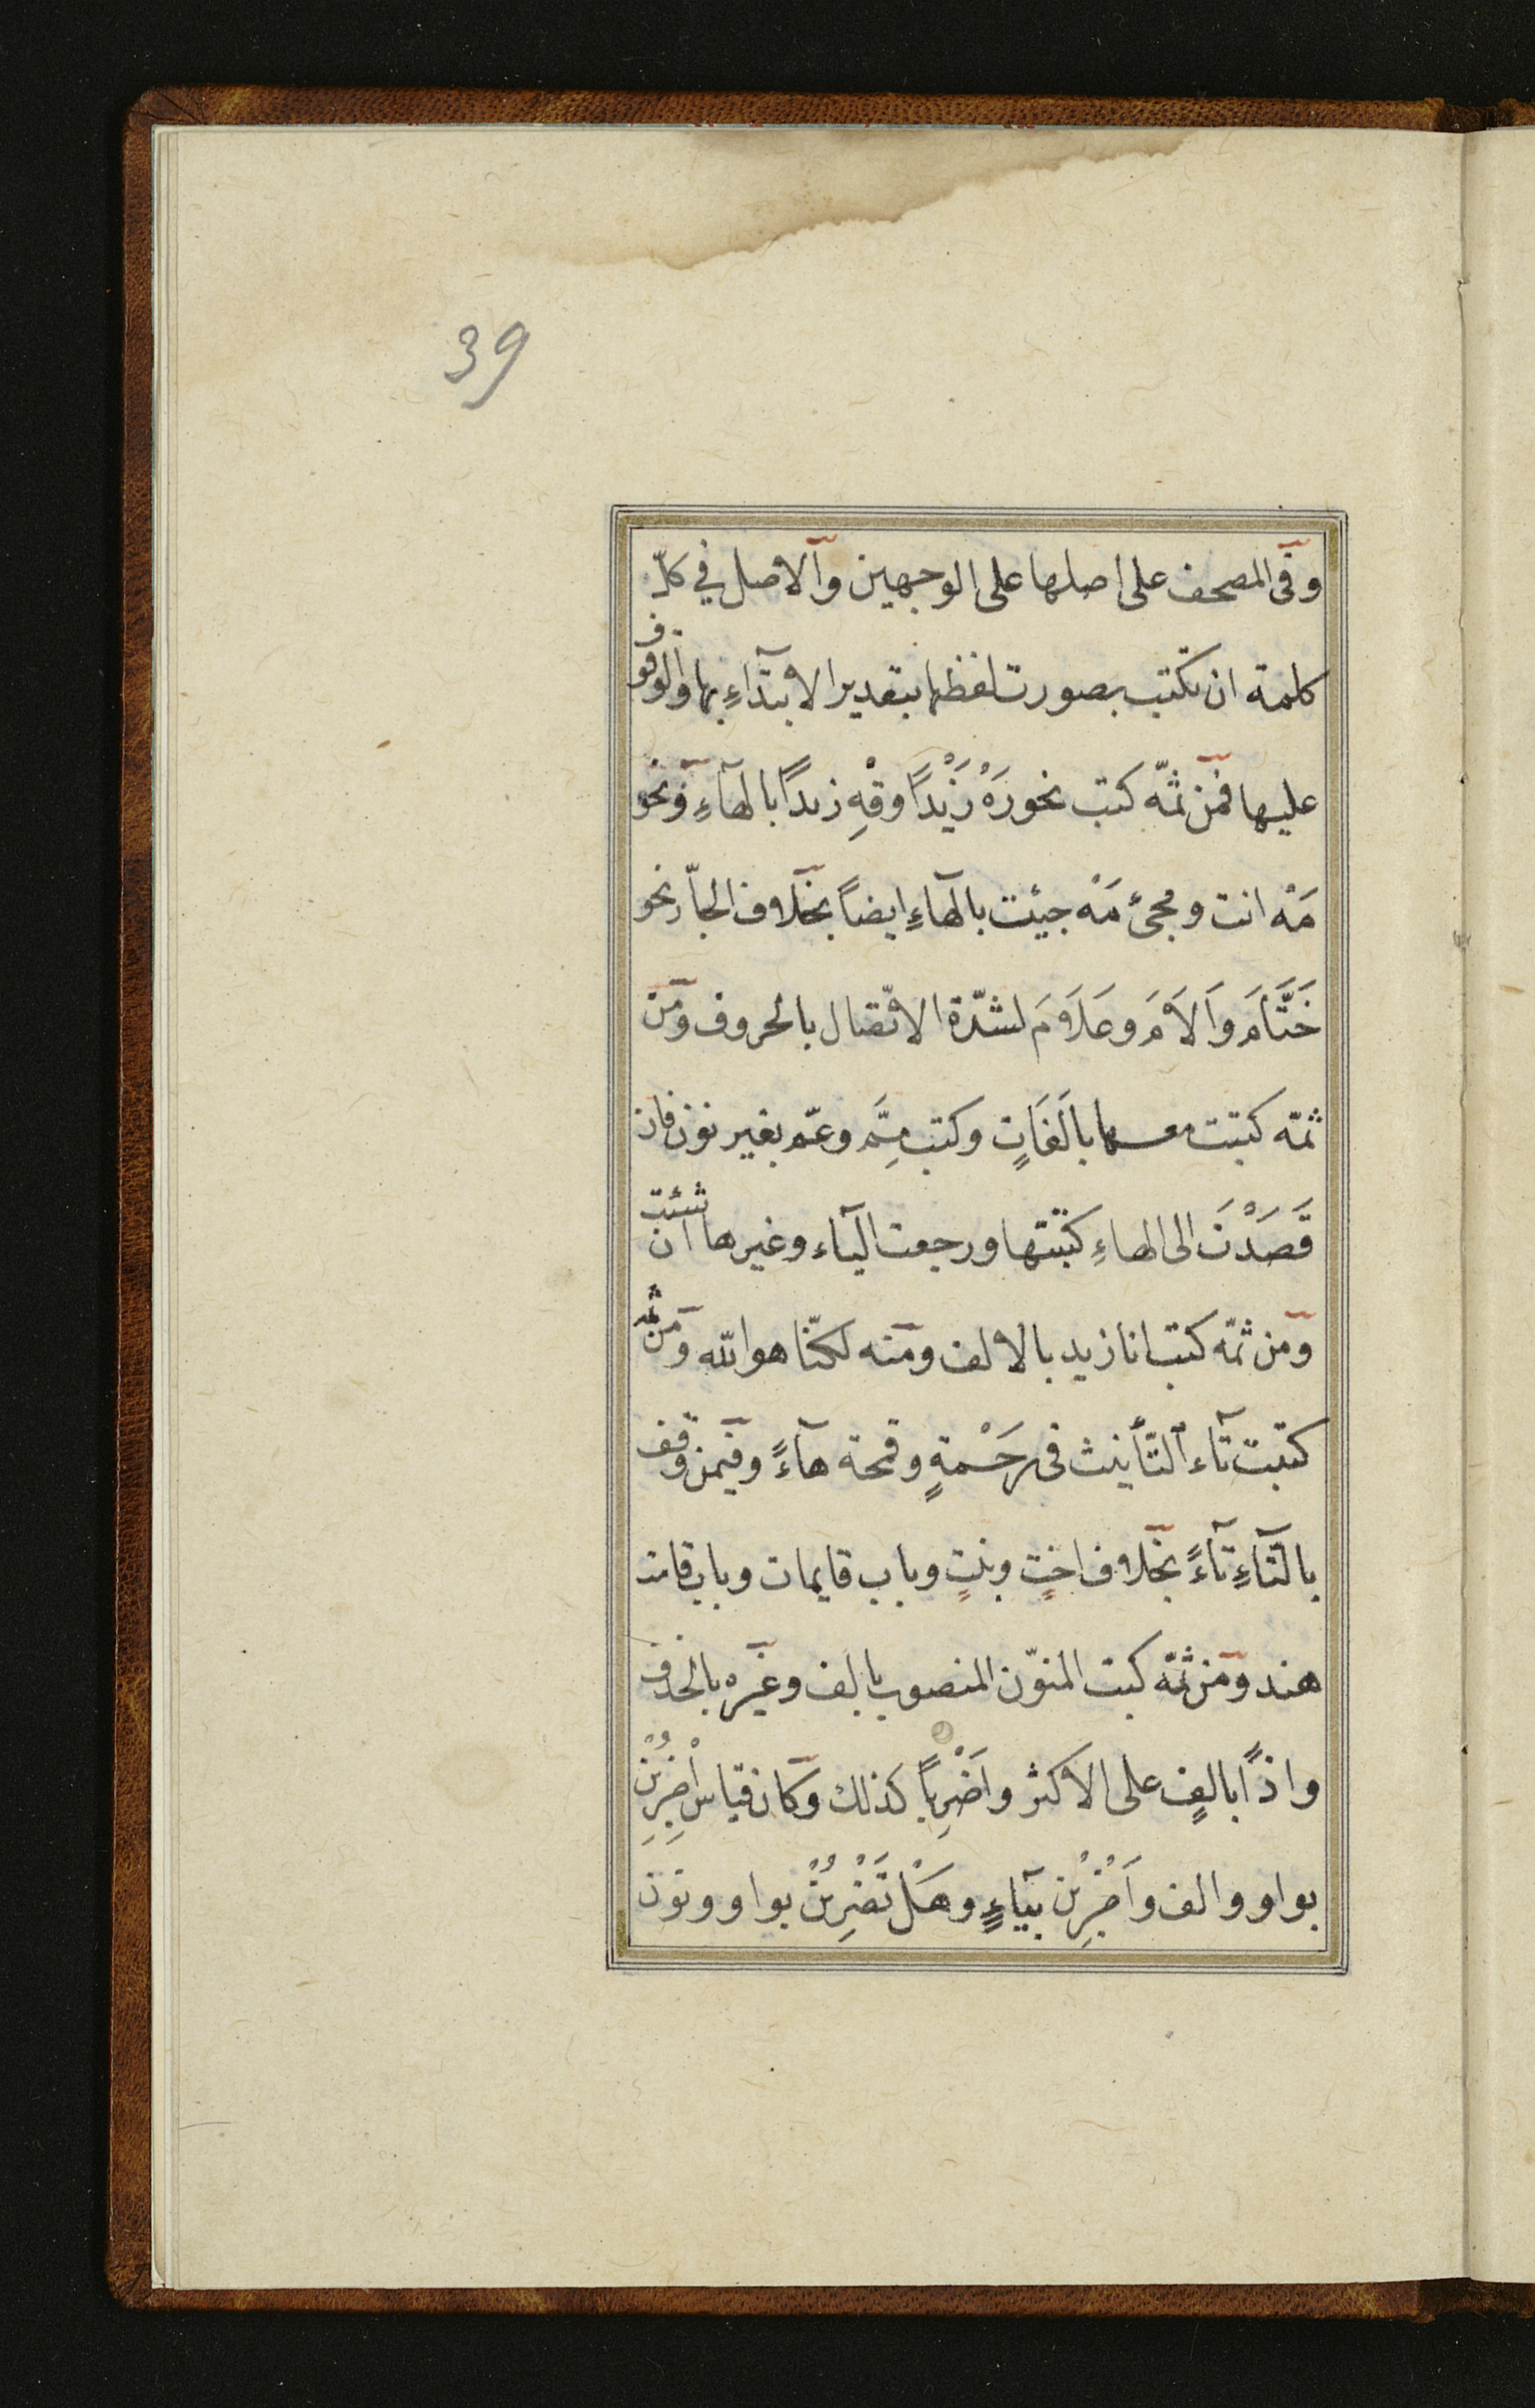 39
وفى المصحف على اصلها على الوجهين والاصل في كلّ
كلمة ان تكتب بصورت لفظها بتقدير الابتدآءِ بها والوقوف
عليها فمن ثمّه كتب نحو رَهْ زَيْدًا وقْهِ زيدًا بالهآءِ ونحو
مَهْ انت ومجئ مَهْ جيئت بالهآءِ ايضاً بخلاف الجاّر نحو
حَتَّامَ وَالَامَ وعَلَامَ لشدّة الاتّصال بالحروف ومن
ثمّه كتبت معها بالَفَاتٍ وكتب مِمَّ وعمّ بغير نون فان
قَصَدْتَ الى الهاءِ كتبتها ورجعت اليآء وغيرها ان شئت
ومن ثمّه كتب انا زيد بالالف ومنه لكنّا هو الله ومن ثمه
كتبت تآء التّأنيث فى رَحْمةٍ وقمحة هآءً وفيمن وقف
بالتّآءِ تآءً بخلاف اختٍ وبنتٍ وباب قايمات وباب قامت
هند ومن ثمّه كبت المنوّن المنصوب بالف وغيره بالحذف
واذًا بالفٍ على الاكثر واَضْرِباً كذلك وكان قياس اضْرِبُنْ
بواو والف واَضْرِبْن بيآءٍ وهَلْ تَضْرِبُنْ بواو ونون